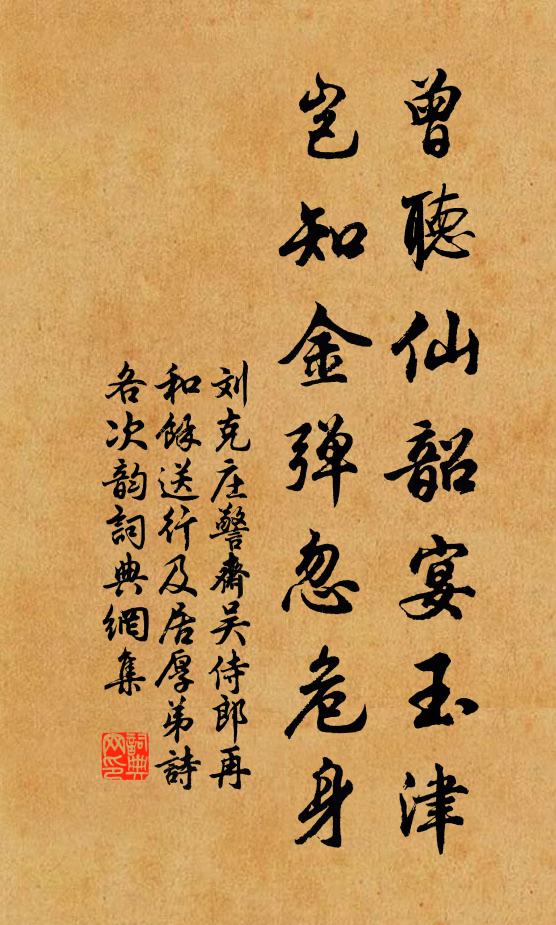 曾聽仙韶宴玉津
豈知金弹忽危身
刘克庄警齋吴侍郎再
和餘送行及居厚弟詩
各次韵詞典網集
詞典網印